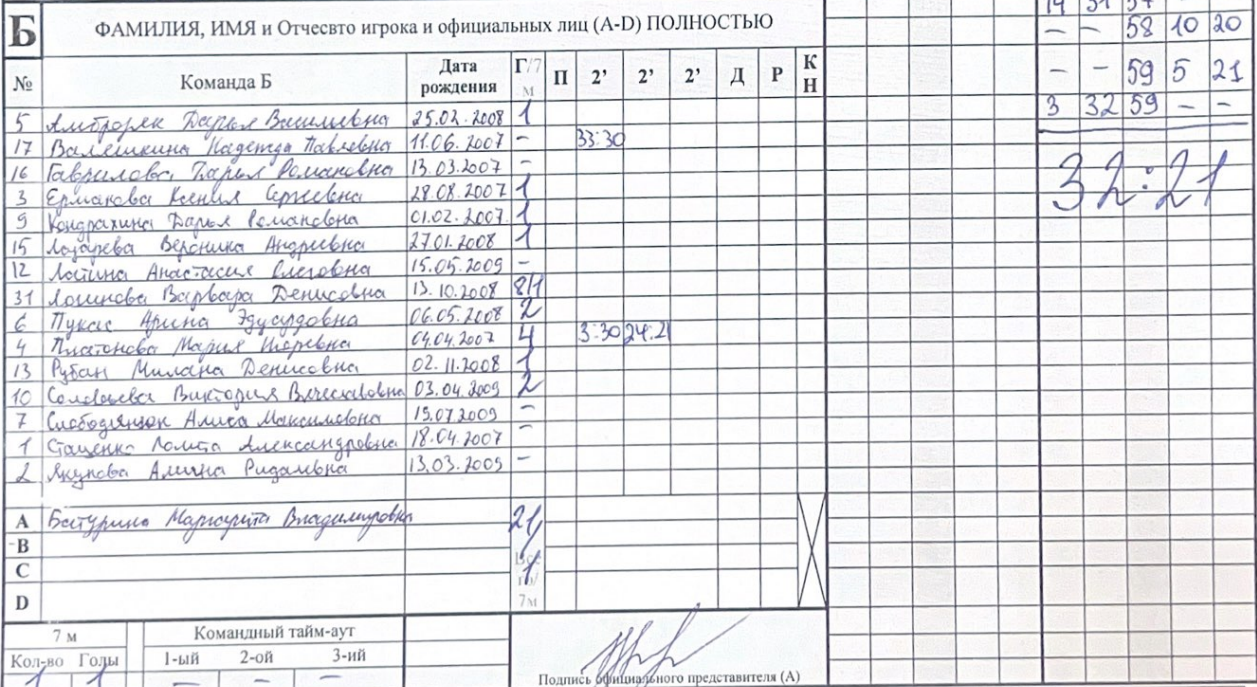 Б ФАМИЛИЯ, ИМЯ и Отчесвто игрока и официальных лиц (A-D) ПОЛНОСТЬЮ
№ Команда Б Дата рождения Г/7 м П 2’ 2’ 2’ Д Р К Н
5 Дарья Васильевна 25.02.2008 1
17 Валяшкина Надежда Павлевна 11.06.2007 – 33:30
16 Гаврилова Дарья Романовна 13.03.2007 –
3 Ермакова Ксения Сергеевна 28.08.2007 1
9 Кондрахина Дарья Романовна 01.02.2007 1
15 Лазарева Вероника Андреевна 27.01.2008 1
12 Анастасия Олеговна 15.05.2009 –
31 Логинова Варвара Денисовна 13.10.2008 8/1
6 Пукас Арина Эдуардовна 06.05.2008 2
4 Платонова Мария Игоревна 04.04.2007 4 3:30 24:21
13 Рубан Милана Денисовна 02.11.2008 1
10 Соловьева Виктория Вячеславовна 03.04.2009 2
7 Слободянюк Алиса Максимовна 19.07.2009 –
1 Стаценко Лолита Александровна 18.04.2007 –
2 Якупова Алина Ридалевна 13.03.2009 –
A Батурина Маргарита Владимировна 21/
B
C 1 Все го/
D 7м
7 м Командный тайм-аут
Кол-во Голы 1-ый 2-ой 3-ий
1 1 – – –
Подпись официального представителя (А)
14 31 57 – –
– – 58 10 20
– – 59 5 21
3 32 59 – –
32:21